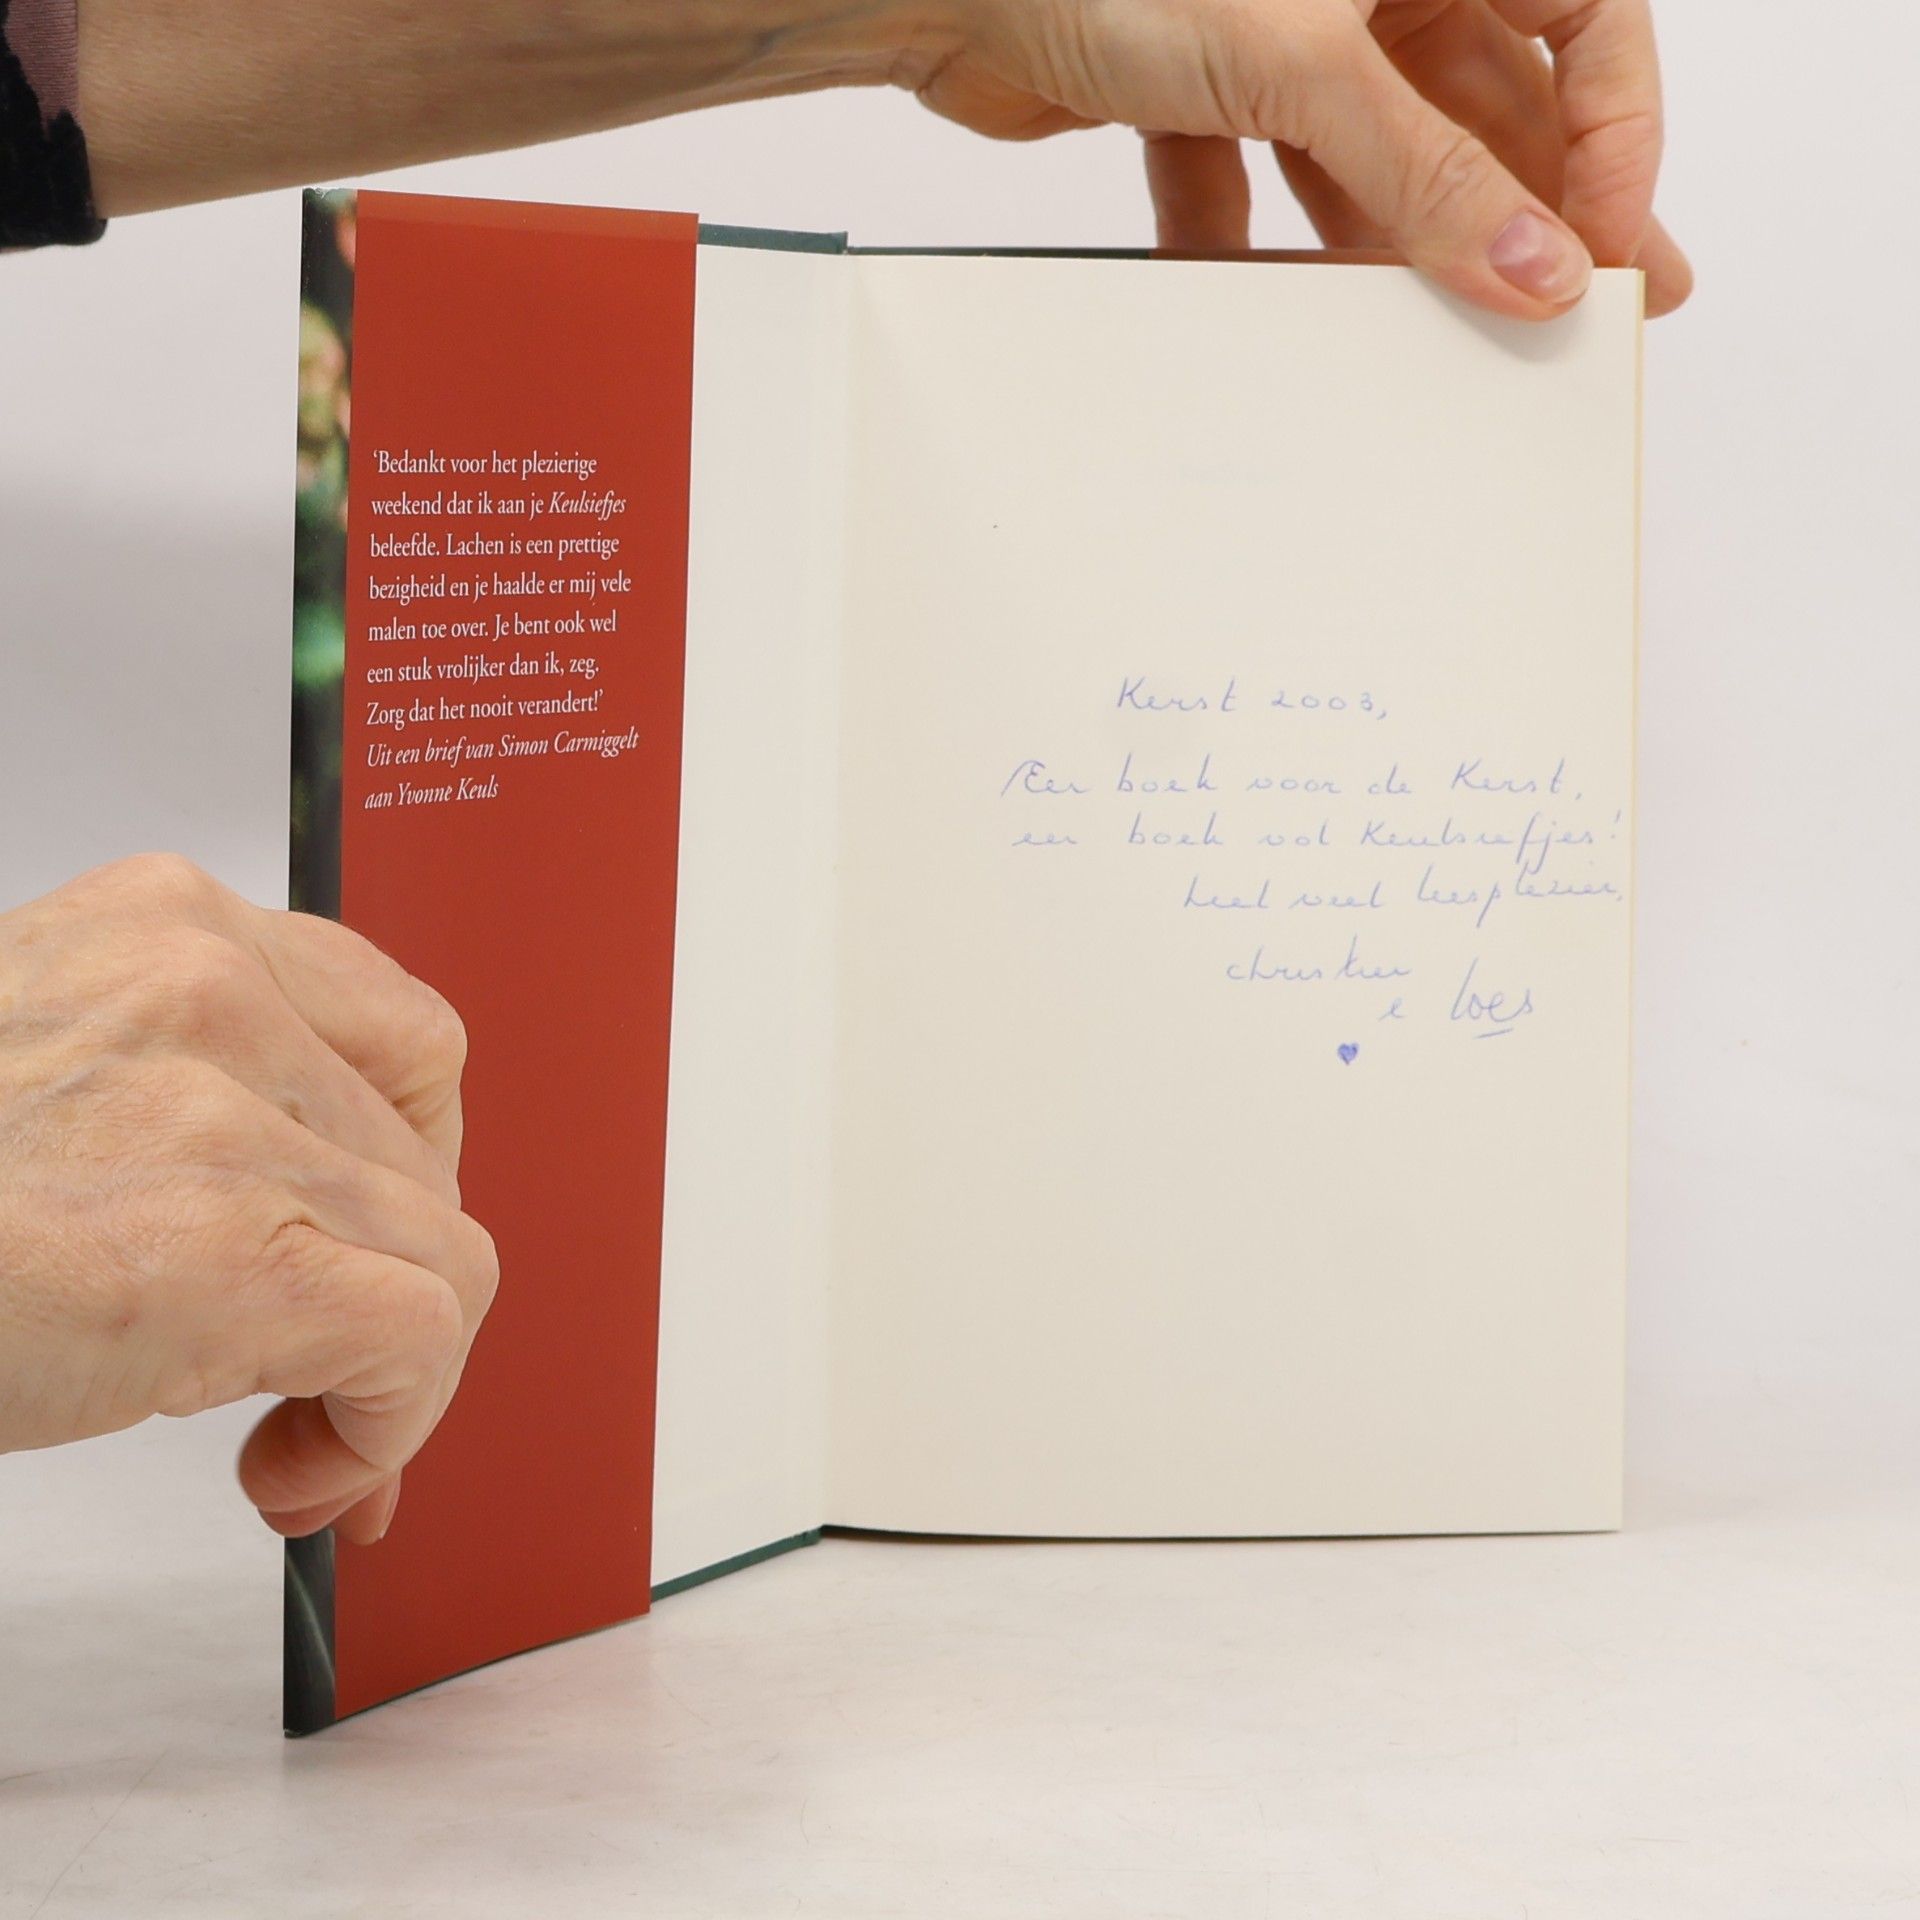 ‘Bedankt voor het plezierige
weekend dat ik aan je Keulsiefjes
beleefde. Lachen is een prettige
bezigheid en je haalde er mij vele
malen toe over. Je bent ook wel
een stuk vrolijker dan ik, zeg.
Zorg dat het nooit verandert!’
Uit een brief van Simon Carmiggelt
aan Yvonne Keuls
Kerst 2003,
Een boek voor de Kerst,
een boek vol Keulsiefjes!
heel veel leesplezier,
Loes